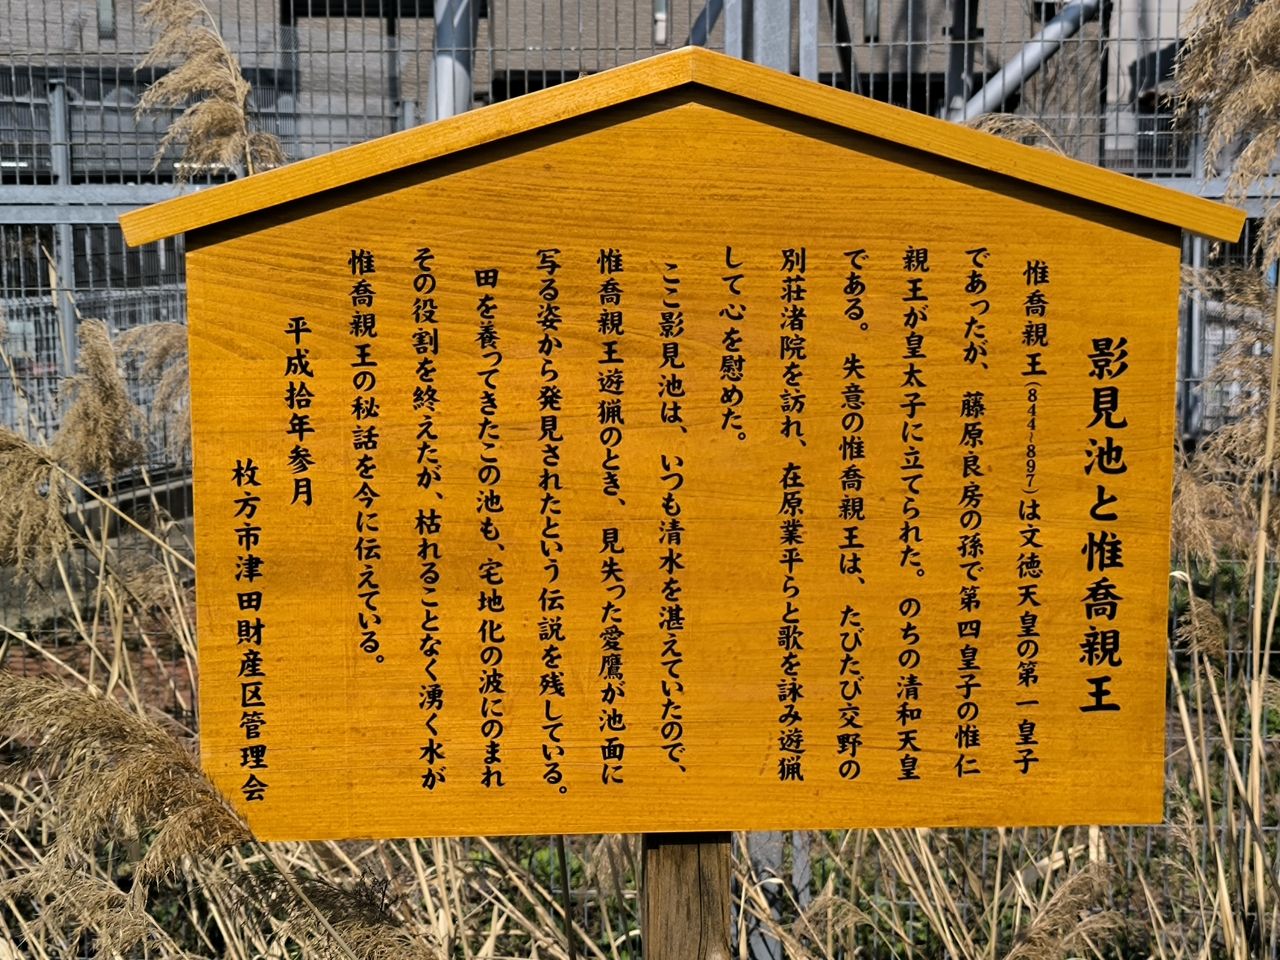 影見池と惟喬親王
惟喬親王(844~897)は文徳天皇の第一皇子
であったが、藤原良房の孫で第四皇子の惟仁
親王が皇太子に立てられた。のちの清和天皇
である。失意の惟喬親王は、たびたび交野の
別荘渚院を訪れ、在原業平らと歌を詠み遊猟
して心を慰めた。
ここ影見池は、いつも清水を湛えていたので、
惟喬親王遊猟のとき、見失った愛鷹が池面に
写る姿から発見されたという伝説を残している。
田を養ってきたこの池も、宅地化の波にのまれ
その役割を終えたが、枯れることなく湧く水が
惟喬親王の秘話を今に伝えている。
平成拾年参月
枚方市津田財産区管理会